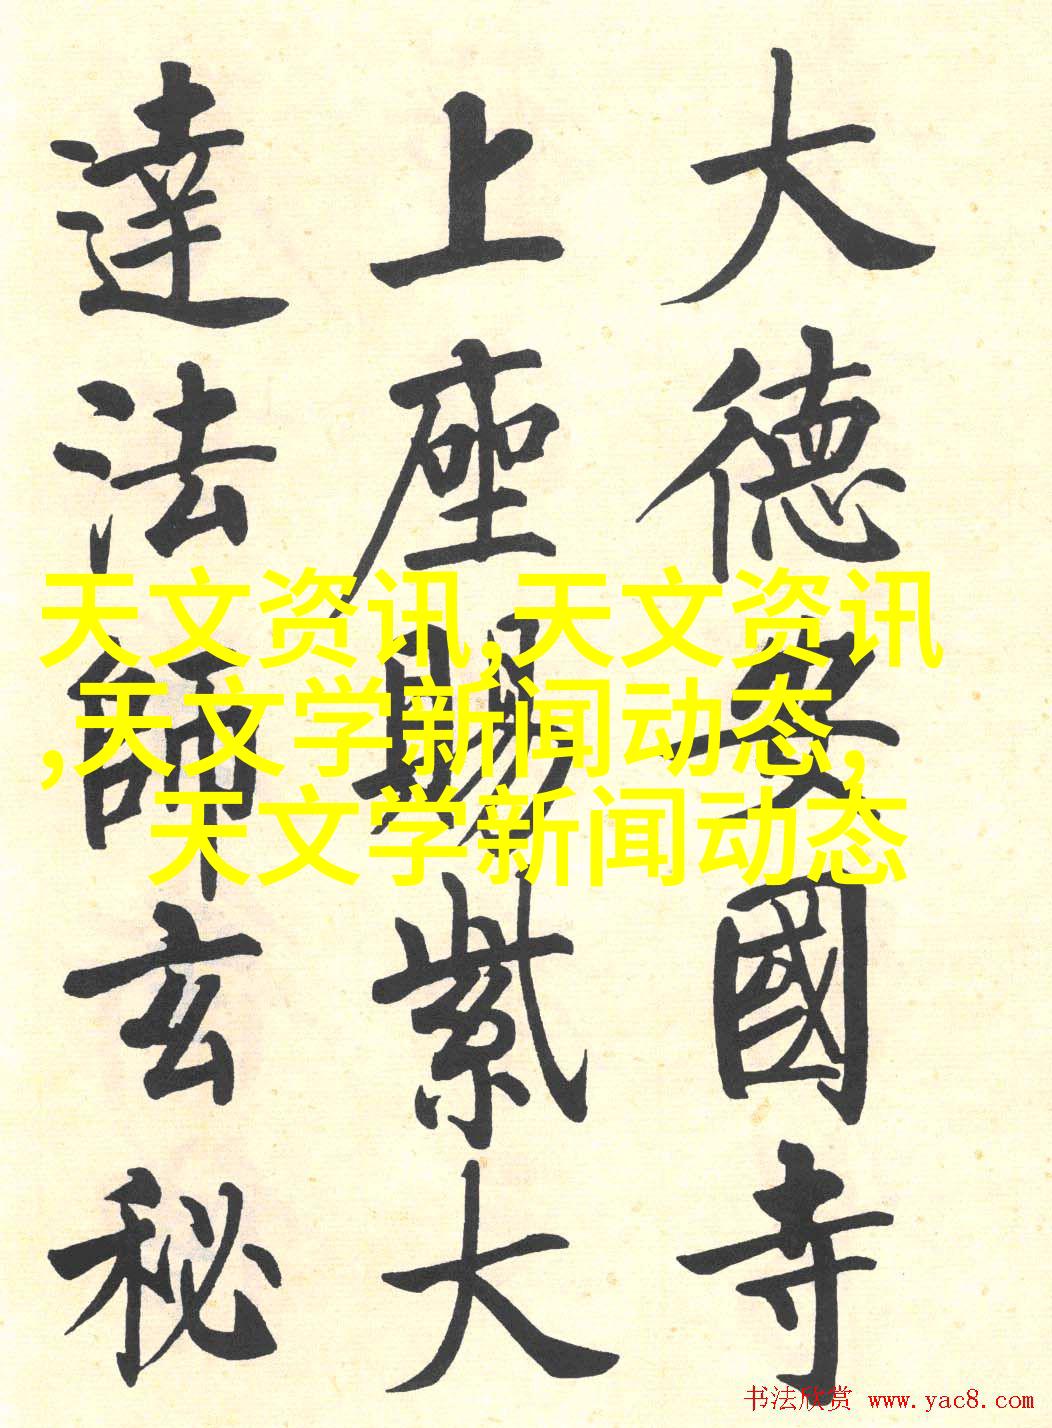 大德安國寺
上座賜紫大
達法師玄秘
天文资讯,天文资讯
,天文学新闻动态,
天文学新闻动态
书法欣赏 www.yac8.com